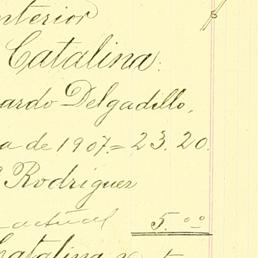 nterior
Catalina.
ardo Delgadillo,
a de 1907 = 23.20.
Rodriguez
actual 5.00
Catalina